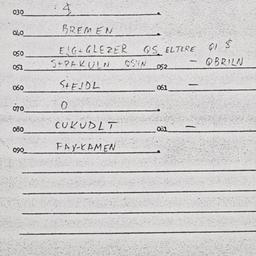 030 $
040 BREMEN
050 EIG+GLEZER QS ELTERE QI $
051 S+PAKULN QSIN 052 — QBRILN
060 S+EIDL 061 —
070 O
080 CUKUDLT 081 —
090 FAY-KAMEN